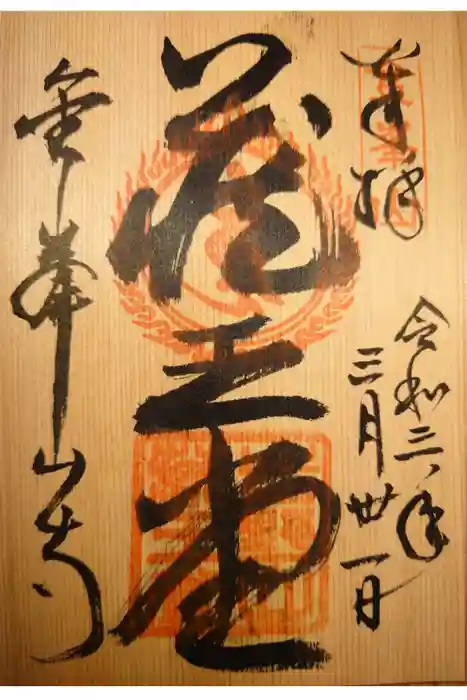 奉拝
令和三年
三月卅一日
蔵王堂
金峯山寺